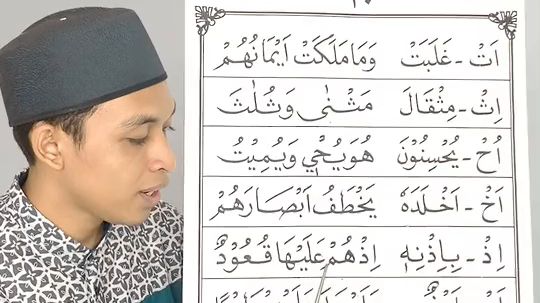 ١٠
اَتْ - غَلَبَتْ وَمَا مَلَكَتْ اَيْمَانُهُمْ
اِثْ - مِثْقَالَ مَثْنٰى وَثُلٰثَ
اُحْ - يُحْسِنُوْنَ هُوَ يُحْيٖ وَيُمِيْتُ
اَخْ - اَخْلَدَهٗ يَخْطَفُ اَبْصَارَهُمْ
اِذْ - بِاِذْنِهٖ اِذْهُمْ عَلَيْهَا قُعُوْدٌ